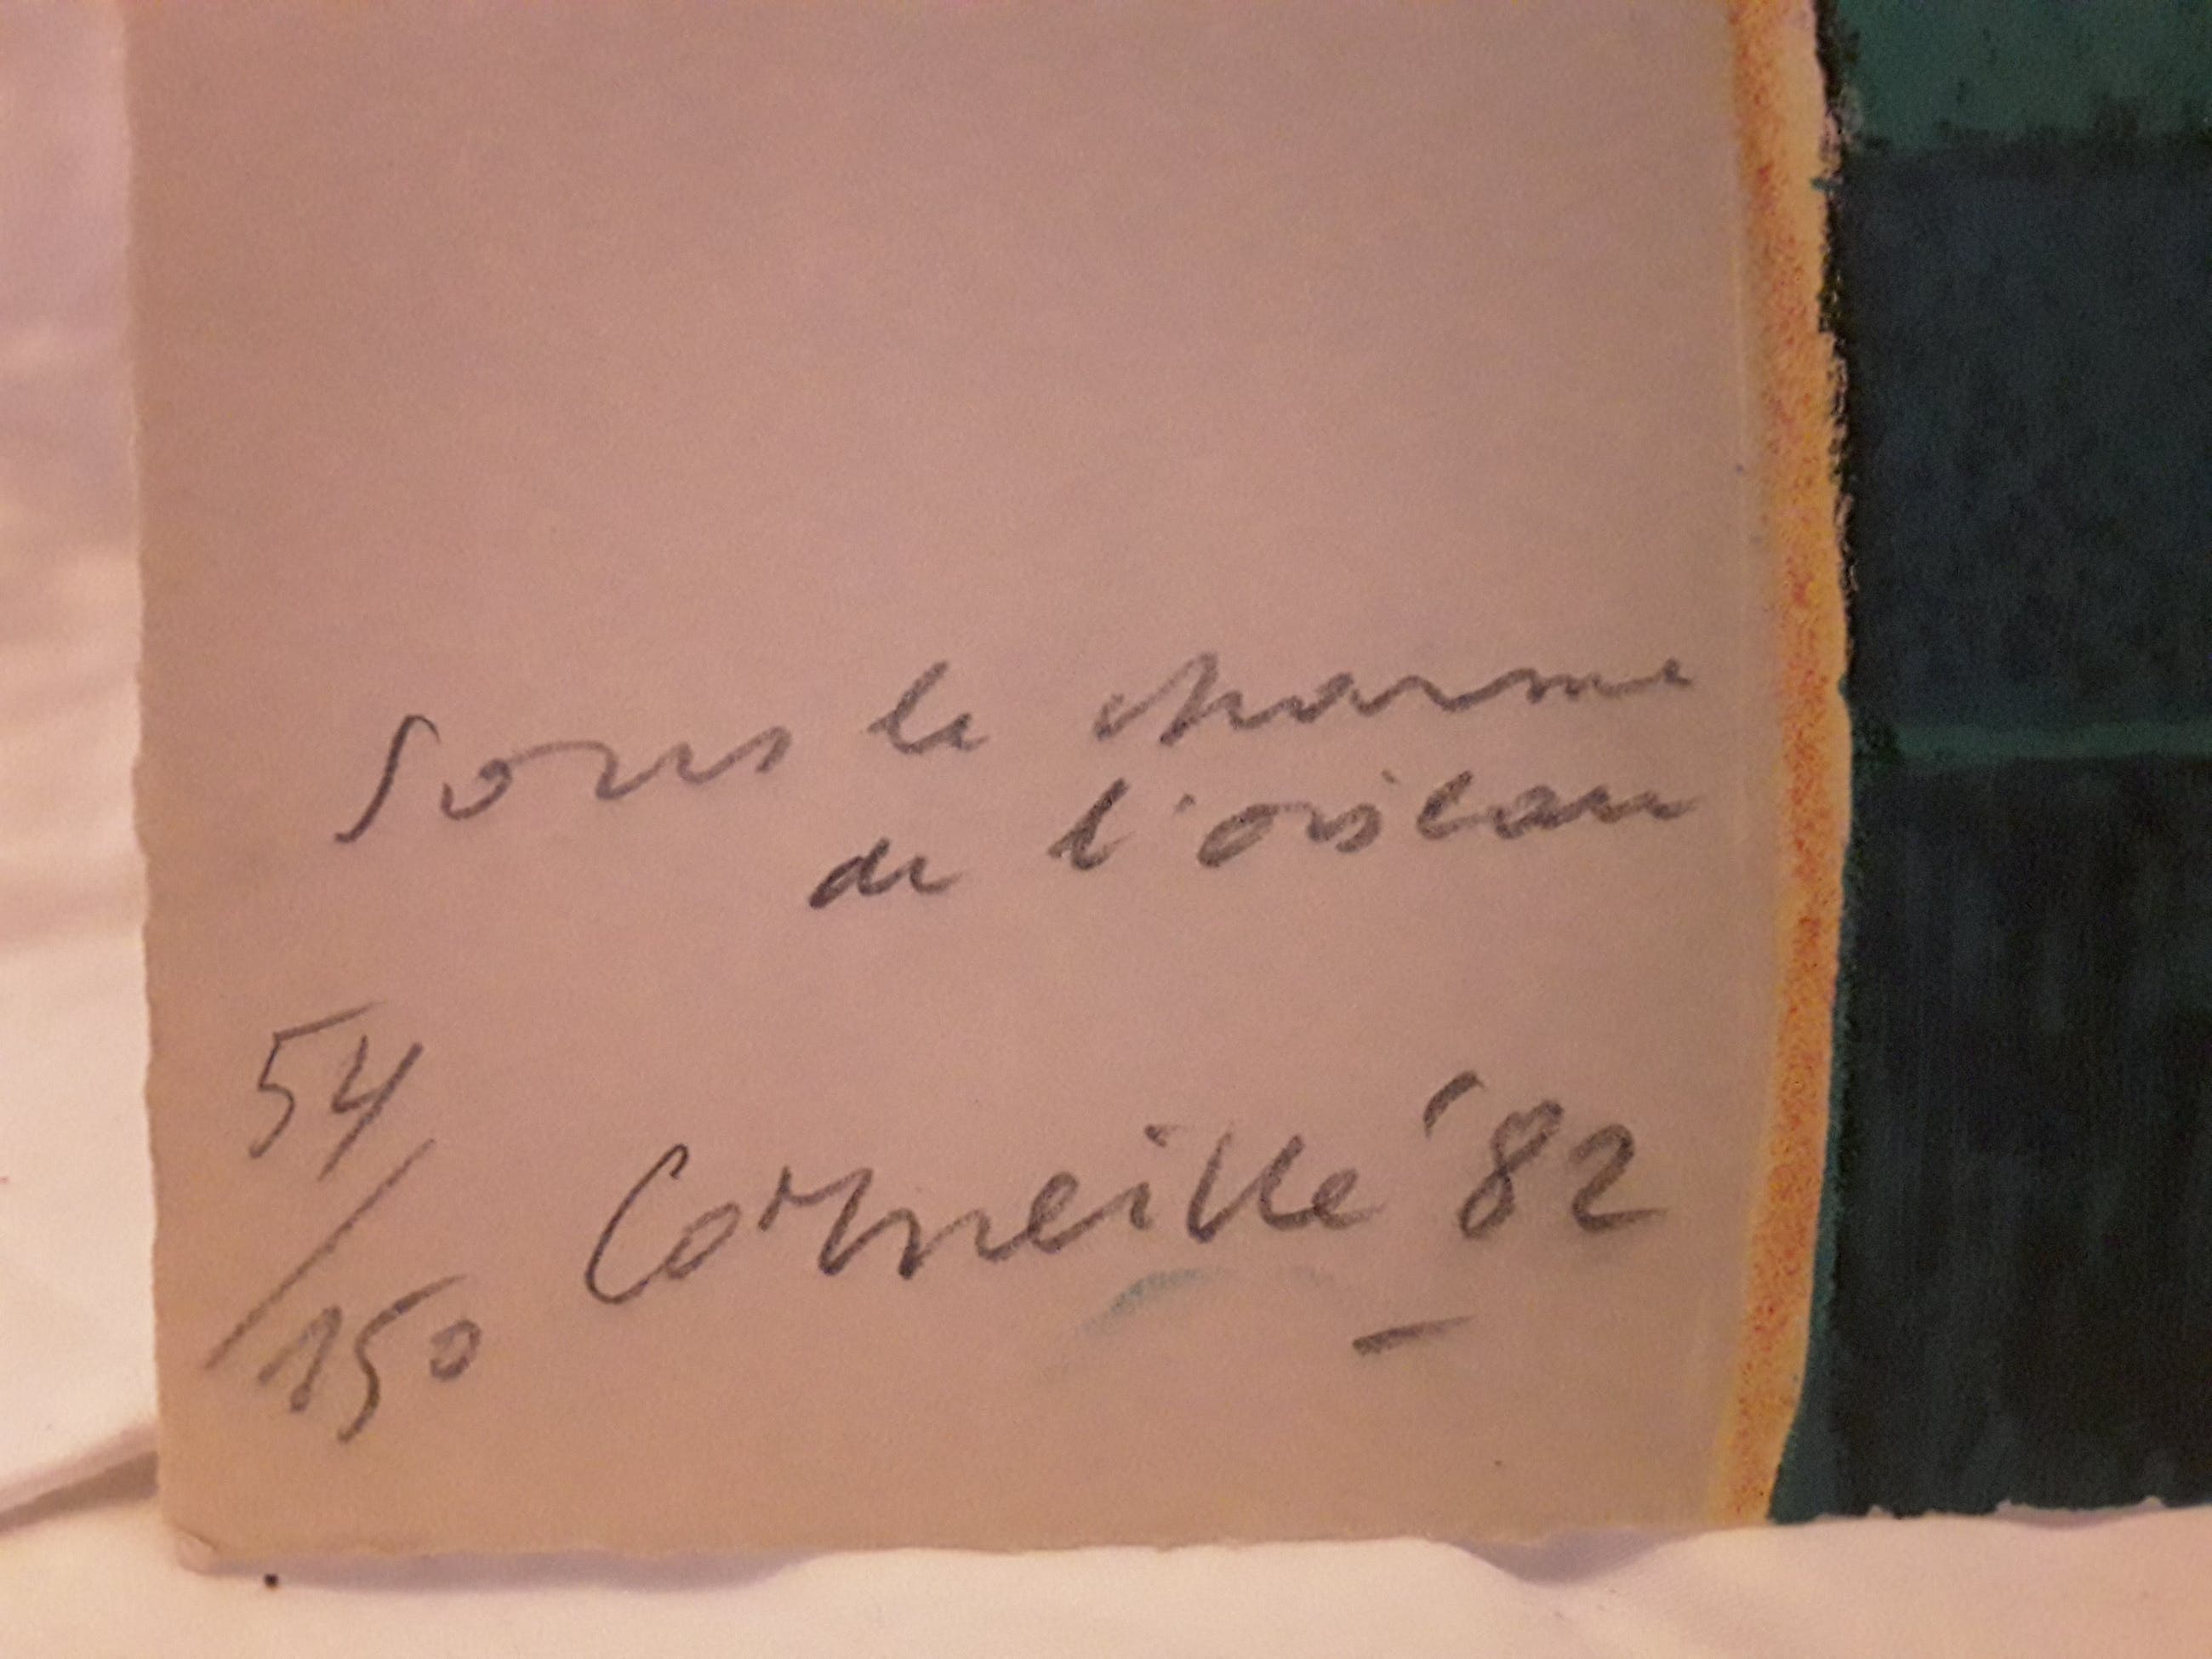 sous le charme
de l'oiseau
54/150
Corneille '82